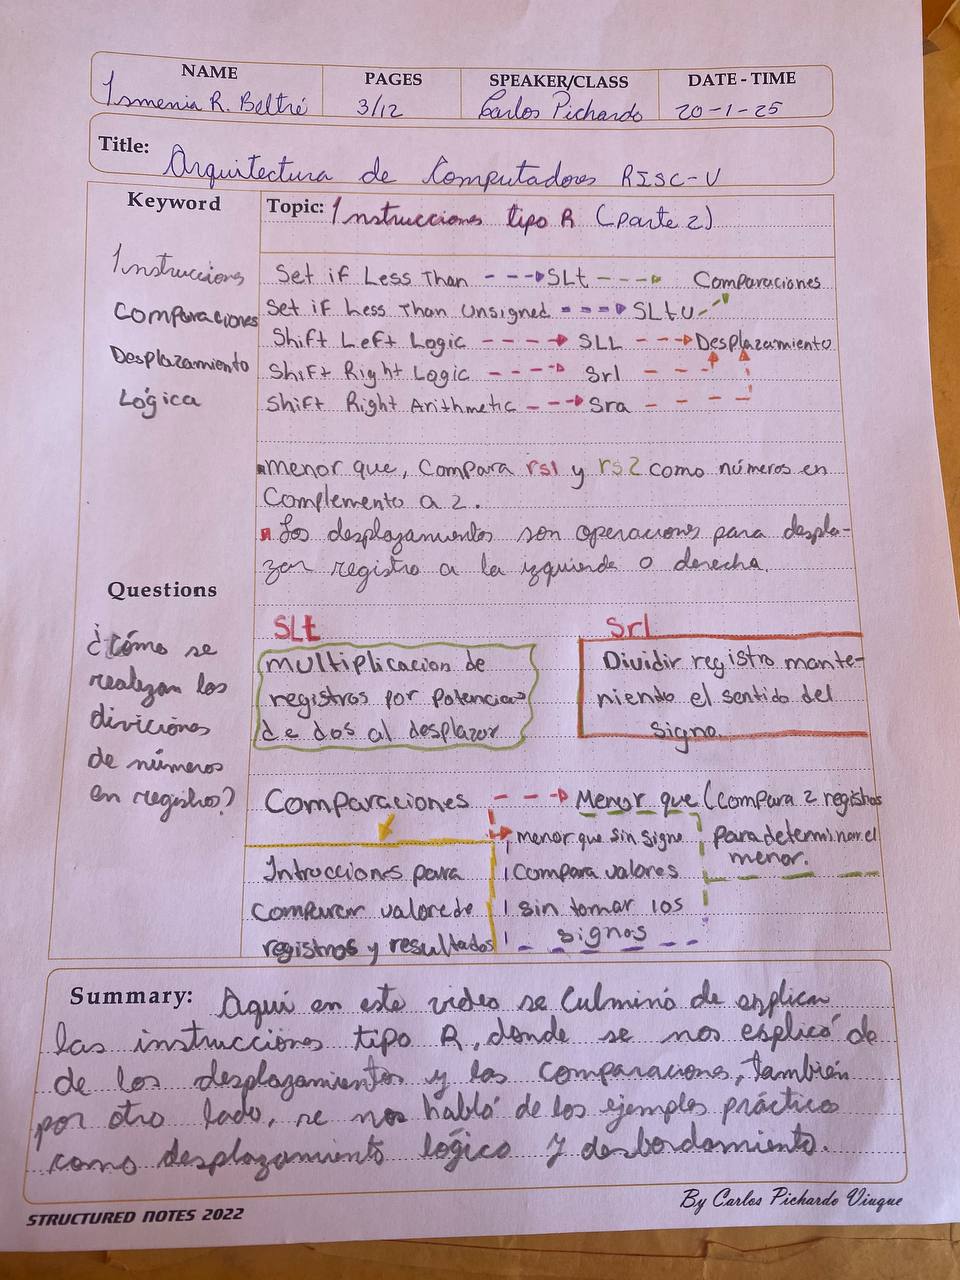 NAME PAGES SPEAKER/CLASS DATE - TIME
Ismenia R. Beltré 3/12 Carlos Pichardo 20-1-25
Title: Arquitectura de Computadores RISC-V
Keyword
Topic: Instrucciones tipo R (parte 2)
Instrucciones
Comparaciones
Desplazamiento
Lógica
Set if Less Than SLt Comparaciones
Set if Less Than Unsigned SLtu
Shift Left Logic SLL Desplazamiento
Shift Right Logic Srl
Shift Right Arithmetic Sra
menor que, Compara rs1 y rs2 como números en
Complemento a 2.
Los desplazamientos son operaciones para despla-
zar registro a la izquierda o derecha.
Questions
¿Cómo se
realizan los
diviciones
de números
en registro?
SLt
multiplicacion de
registros por potencias
de dos al desplazar
Srl
Dividir registro mante-
niendo el sentido del
signo.
Comparaciones
Intrucciones para
Comparar valore de
registros y resultados
Menor que (Compara 2 registros
para determinar el
menor.
menor que sin signe
Compara valores
sin tomar los
signos
Summary: Aqui en este video se Culminó de explica
las instrucciones tipo R, donde se nos esplicó de
de los desplazamientos y las comparaciones, también
por otro lado, se nos habló de los ejemplos práctico
como desplazamiento lógico y desbordamiento.
STRUCTURED NOTES 2022
By Carlos Pichardo Viuque